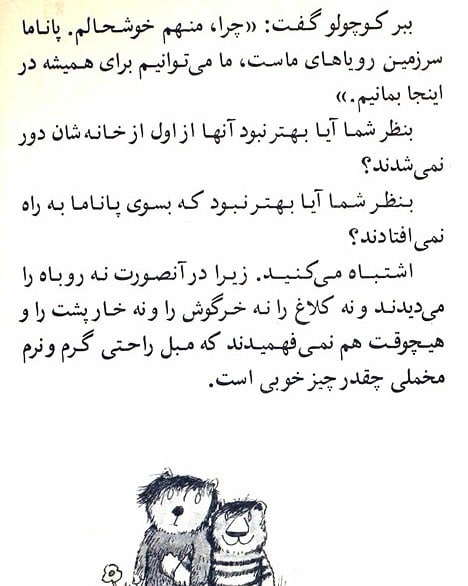 ببر کوچولو گفت: «چرا، منهم خوشحالم. پاناما
سرزمین رویاهای ماست، ما می‌توانیم برای همیشه در
اینجا بمانیم.»
بنظر شما آیا بهتر نبود آنها از اول از خانه شان دور
نمی‌شدند؟
بنظر شما آیا بهتر نبود که بسوی پاناما به راه
نمی‌افتادند؟
اشتباه می‌کنید. زیرا در آنصورت نه روباه را
می‌دیدند و نه کلاغ را نه خرگوش را و نه خارپشت را و
هیچوقت هم نمی‌فهمیدند که مبل راحتی گرم و نرم
مخملی چقدر چیز خوبی است.